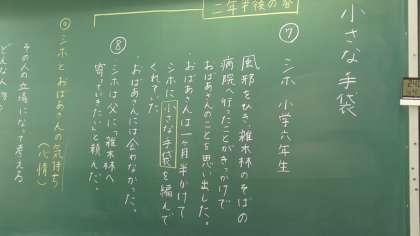 小さな手袋
二年半後の冬
⑦ シホ 小学六年生
風邪をひき、雑木林のそばの
病院へ行ったことがきっかけで
おばあさんのことを思い出した。
・おばあさんは一ヶ月半かけて
シホに小さな手袋を編んで
くれていた
⑧・おばあさんには会わなかった。
・シホは父に「雑木林へ
寄っていきたい」と頼んだ。
◎シホとおばあさんの気持ち
(心情)
その人の立場になって考える